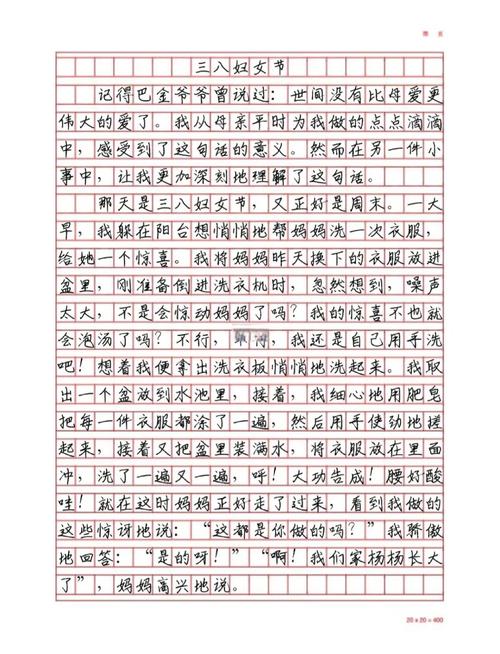 三八妇女节
记得巴金爷爷曾说过：世间没有比母爱更
伟大的爱了。我从母亲平时为我做的点点滴滴
中，感受到了这句话的意义。然而在另一件小
事中，让我更加深刻地理解了这句话。
那天是三八妇女节，又正好是周末。一大
早，我躲在阳台想悄悄地帮妈妈洗一次衣服，
给她一个惊喜。我将妈妈昨天换下的衣服放进
盆里，刚准备倒进洗衣机时，忽然想到，噪声
太大，不是会惊动妈妈了吗？我的惊喜不也就
会泡汤了吗？不行，我还是自己用手洗
吧！想着我便拿出洗衣板悄悄地洗起来。我取
出一个盆放到水池里，接着，我细心地用肥皂
把每一件衣服都涂了一遍，然后用手使劲地搓
起来，接着又把盆里装满水，将衣服放在里面
冲，洗了一遍又一遍，呼！大功告成！腰好酸
哇！就在这时妈妈正好走了过来，看到我做的
这些惊讶地说：“这都是你做的吗？”我骄傲
地回答：“是的呀！”“啊！我们家杨杨长大
了”，妈妈高兴地说。
20 x 20 = 400